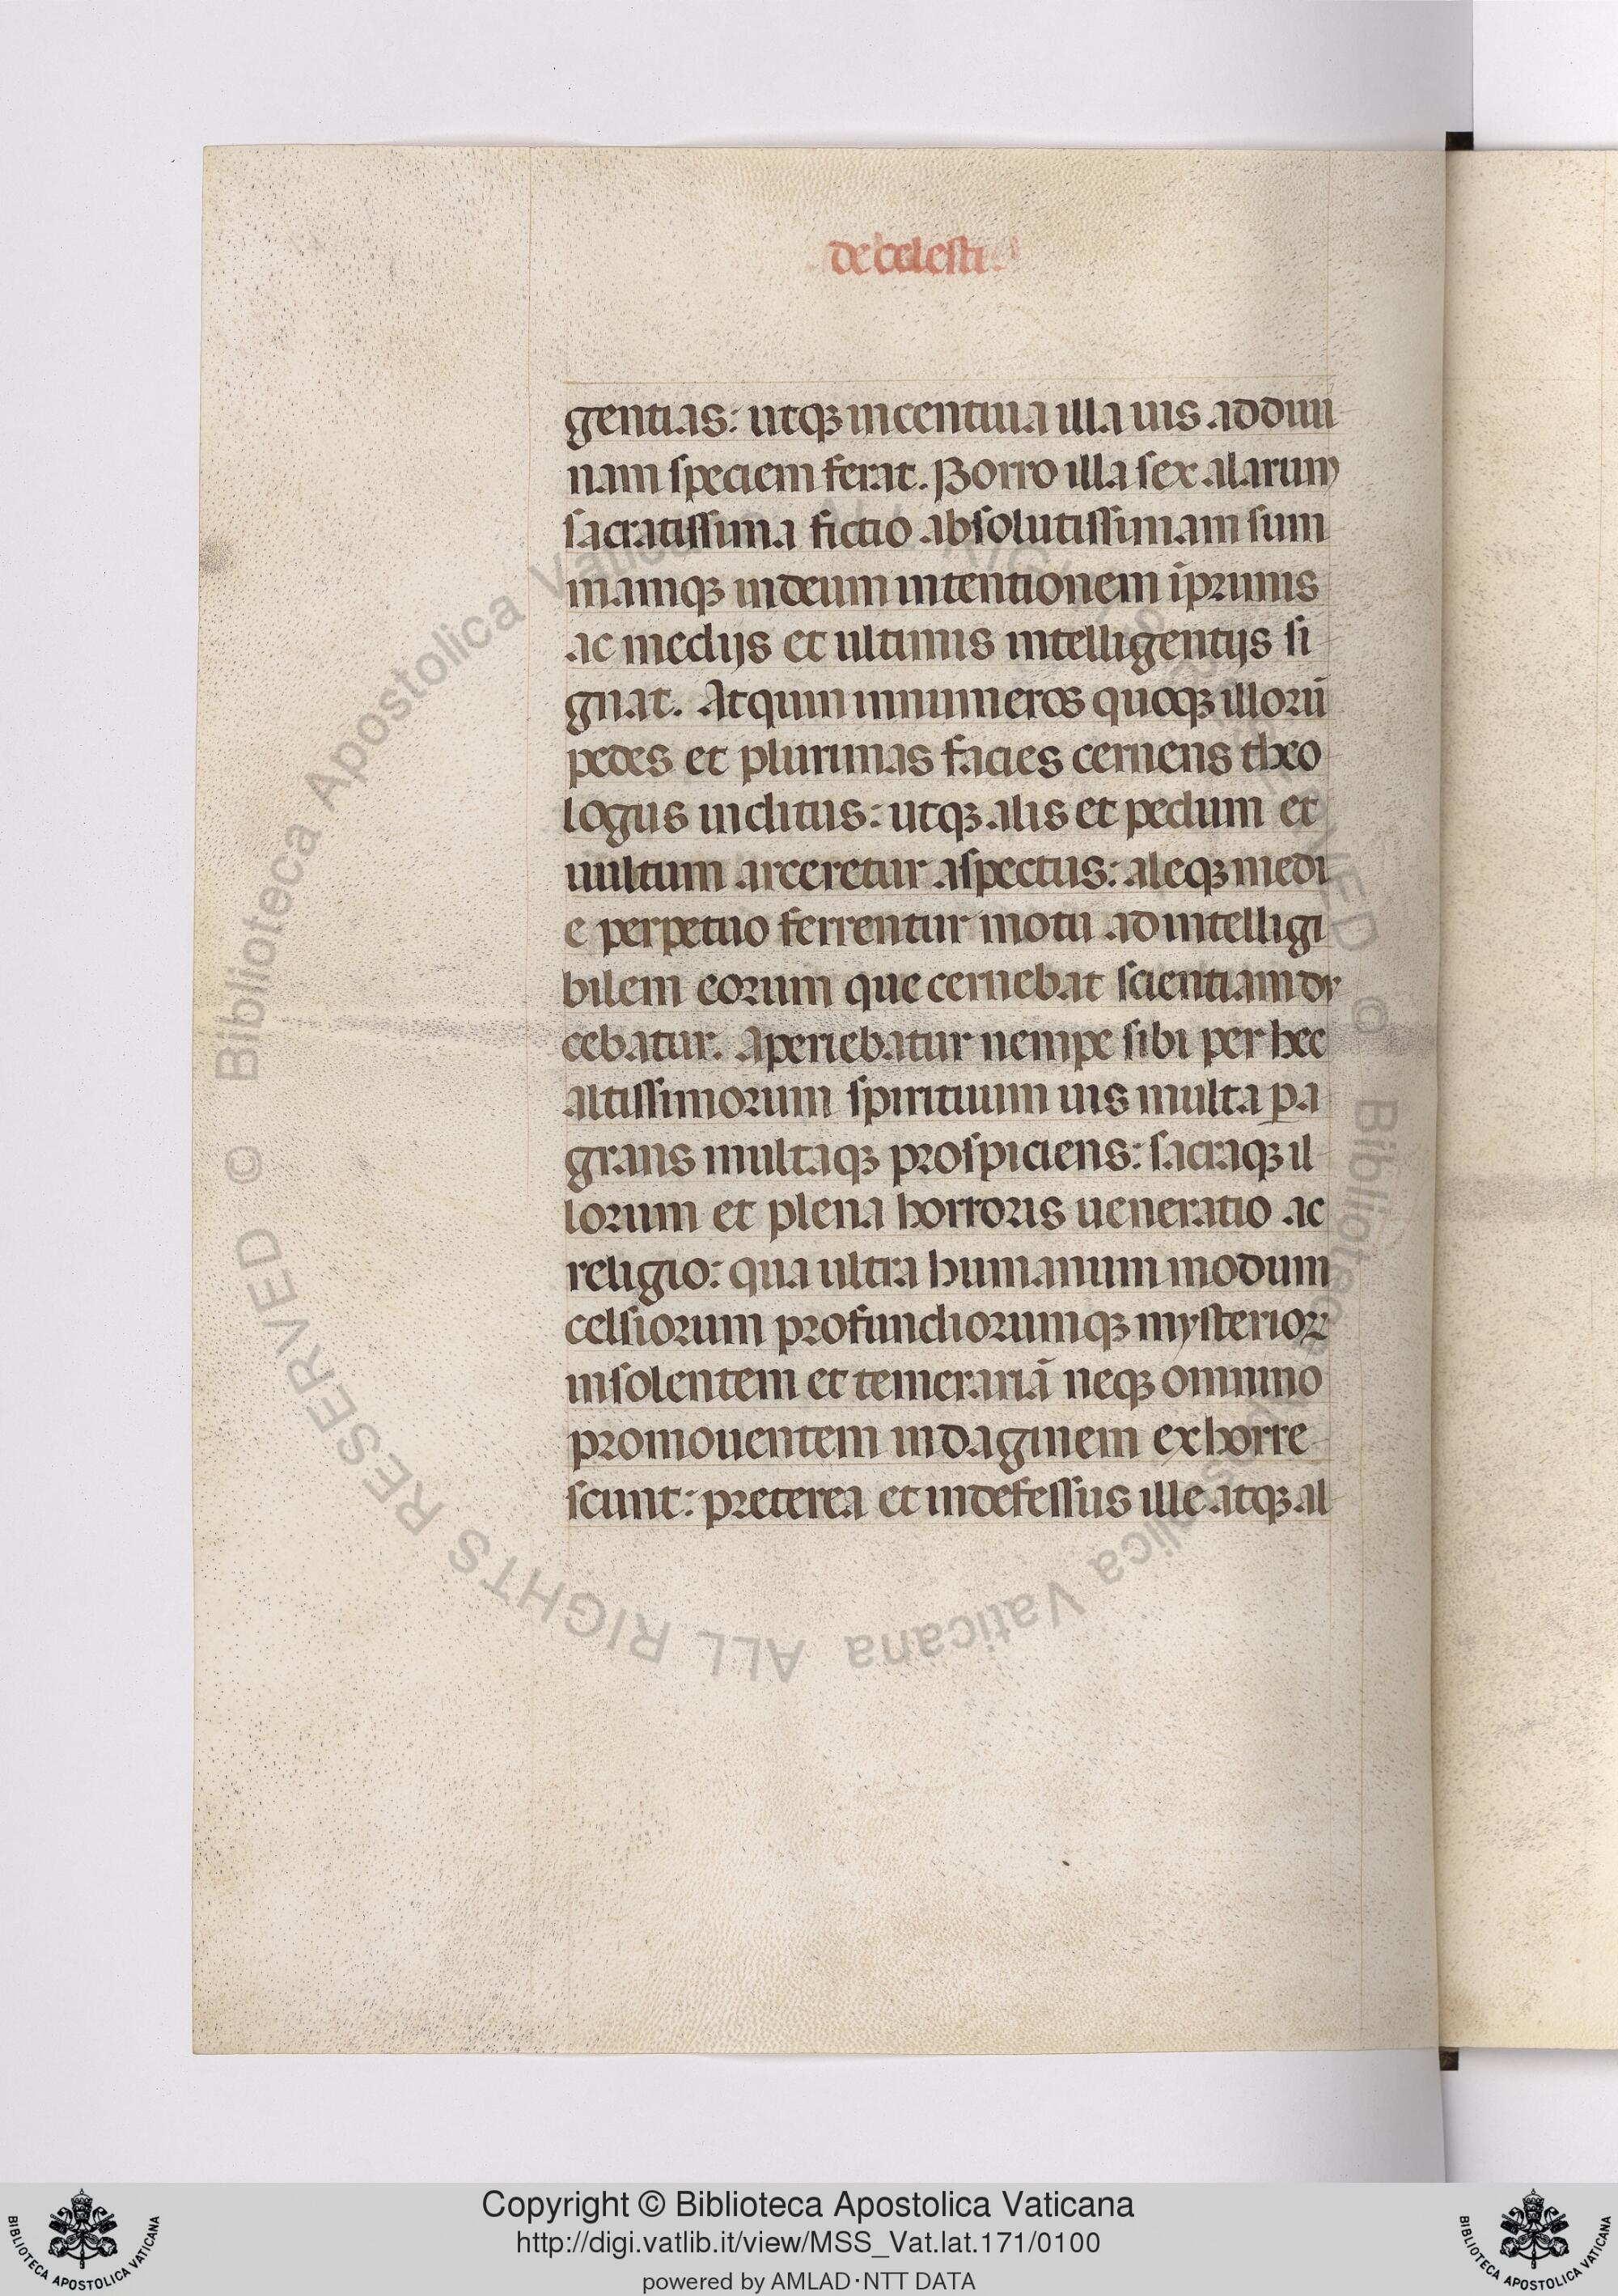 de celesti
gentias: utqꝫ incentiua illa uis ad diui
nam speciem ferat. Porro illa sex alarum
sacratissima fictio absolutissimam sum
mamqꝫ in deum intentionem ĩ primis
ac medijs et ultimis intelligentijs si
gnat. Atquin innumeros quoqꝫ illorũ
pedes et plurimas facies cernens theo
logus inclitus: utqꝫ alis et pedum et
uultum arceretur aspectus: aleqꝫ medi
e perpetuo ferrentur motu ad intelligi
bilem eorum que cernebat scientiam dr
cebatur. Aperiebatur nempe sibi per hec
altissimorum spirituum uis multa ꝑa
grans multaqꝫ prospiciens: sacraqꝫ il
lorum et plena horroris ueneratio ac
religio: qua ultra humanum modum
celsiorum profundiorumqꝫ mysterioꝝ
insolentem et temerariã neqꝫ omnino
promouentem indaginem exhorre
scunt: preterea et indefessus ille atqꝫ al
© Biblioteca Apostolica Vaticana ALL RIGHTS RESERVED © Biblioteca Apostolica Vaticana ALL RIGHTS RESERVED
Copyright © Biblioteca Apostolica Vaticana
http://digi.vatlib.it/view/MSS_Vat.lat.171/0100
powered by AMLAD·NTT DATA
BIBLIOTECA APOSTOLICA VATICANA
BIBLIOTECA APOSTOLICA VATICANA